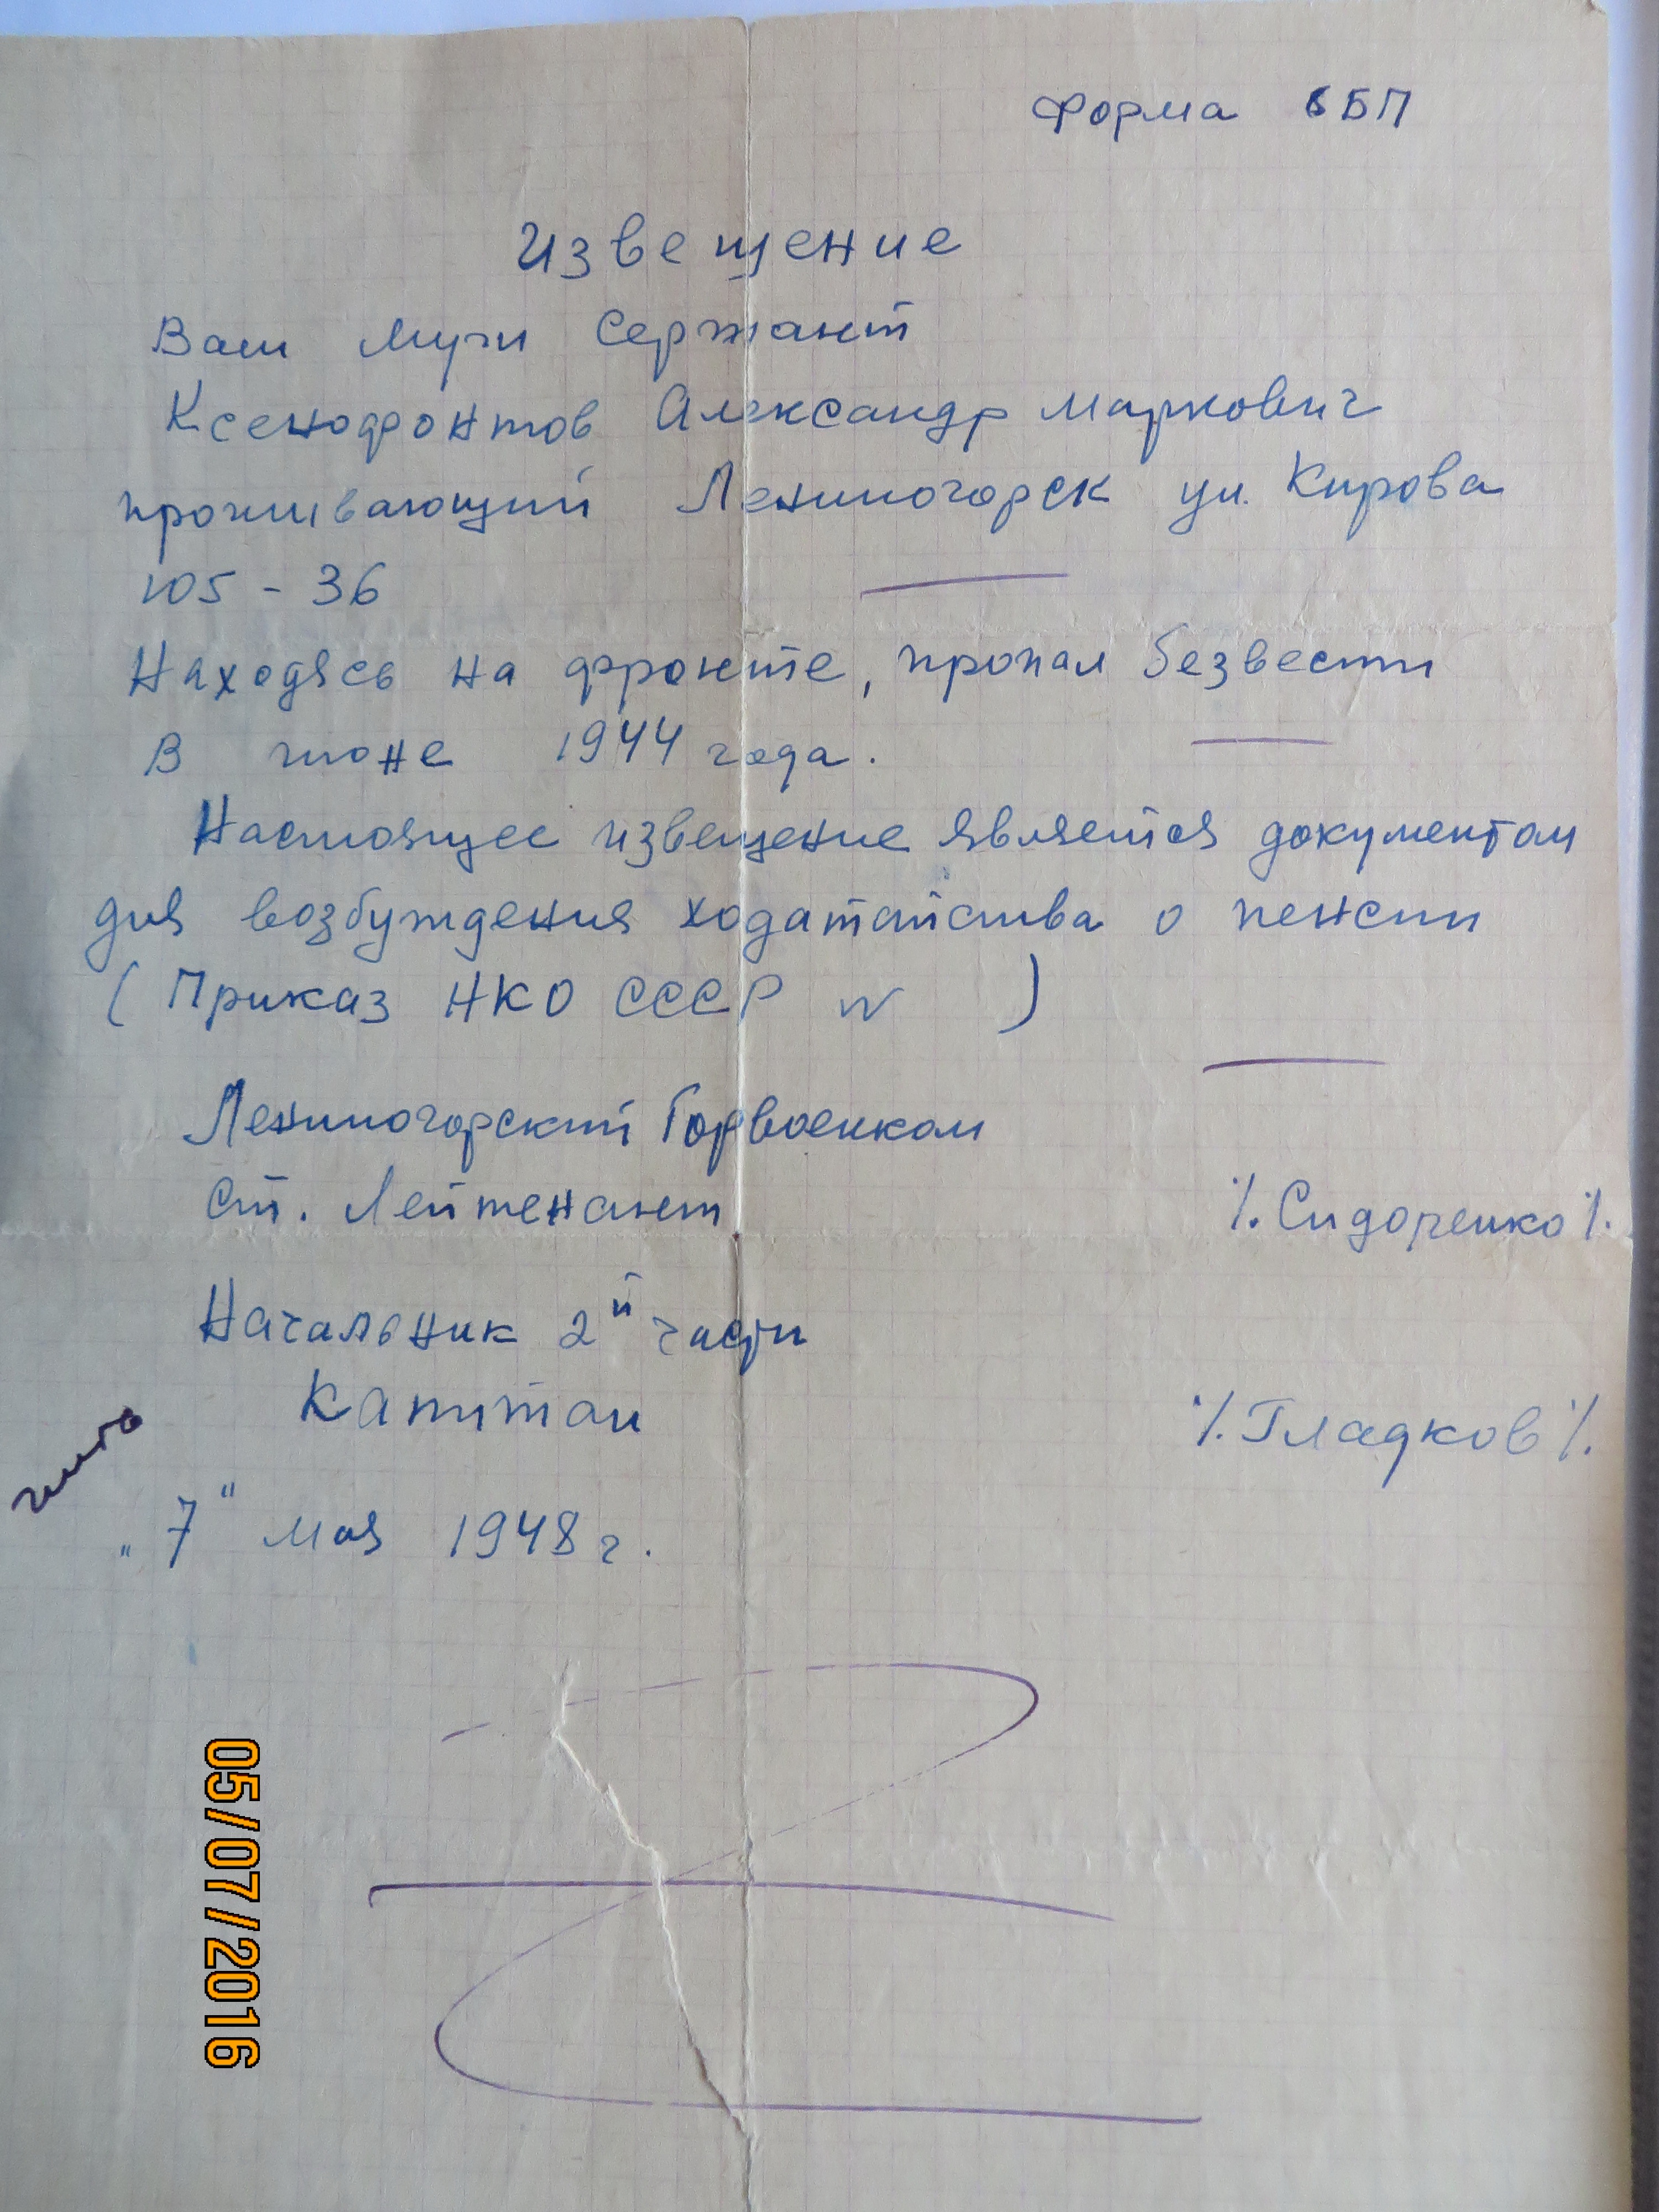 Форма 6БП
Извещение
Ваш муж Сержант
Ксенофонтов Александр Маркович
проживающий Лениногорск ул. Кирова
105 - 36
Находясь на фронте, пропал безвести
В июне 1944 года.
Настоящее извещение является документом
для возбуждения ходатайства о пенсии
( Приказ НКО СССР N )
Лениногорский Горвоенком
Ст. Лейтенант /. Сидоренко /.
Начальник 2й части
Капитан /. Гладков /.
„7" мая 1948 г.
05/07/2016